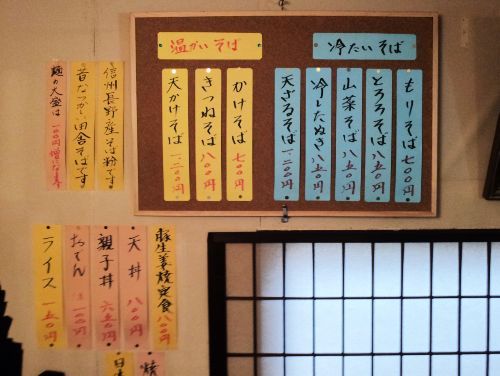 冷たいそば
もりそば 七〇〇円
とろろそば 八五〇円
山菜そば 八五〇円
冷したぬき 八五〇円
天ざるそば 一二〇〇円
温かいそば
かけそば 七〇〇円
きつねそば 八〇〇円
天かけそば 一二〇〇円
信州長野産そば粉です
昔なつかしい田舎そばです
麺の大盛は 一〇〇円増になります
豚生姜焼定食 八〇〇円
天丼 八〇〇円
親子丼 六五〇円
おでん 一〇〇円
ライス 一五〇円